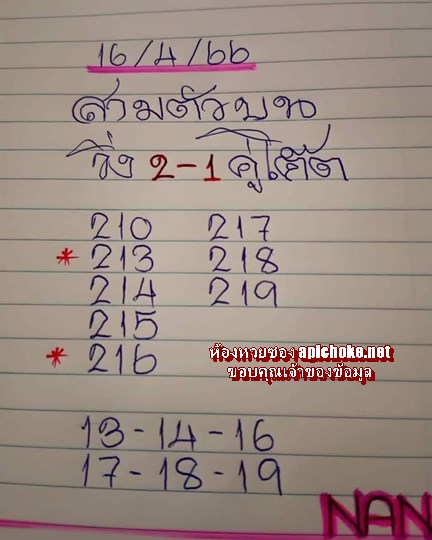 16/4/66
สามตัวบน
วิ่ง 2-1 คู่โต๊ด
210 217
* 213 218
214 219
215
* 216
ห้องหวยซอง apichoke.net
ขอบคุณเจ้าของข้อมูล
13-14-16
17-18-19
NAN